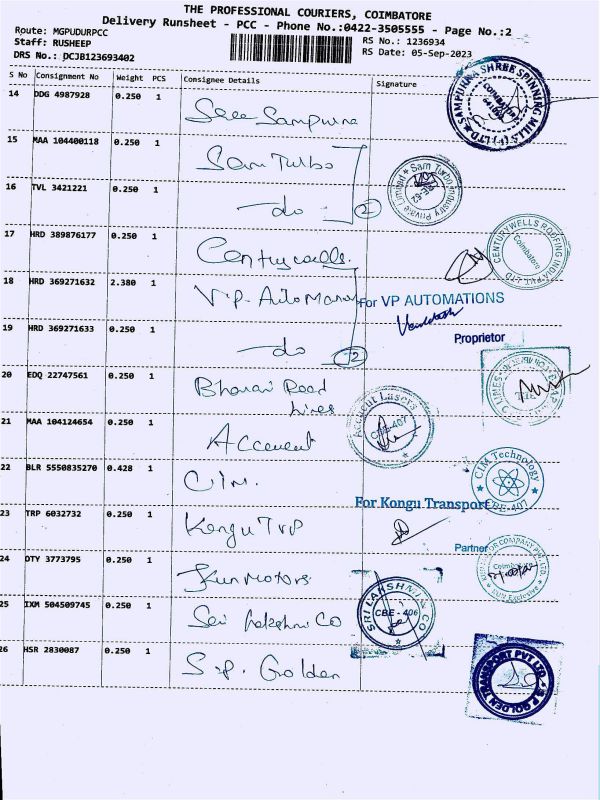 THE PROFESSIONAL COURIERS, COIMBATORE
Delivery Runsheet - PCC - Phone No.:0422-3505555 - Page No.:2
Route: MGPUDURPCC
Staff: RUSHEEP
DRS No.: DCJB123693402
RS No.: 1236934
RS Date: 05-Sep-2023
S No Consignment No Weight PCS Consignee Details Signature
14 DDG 4987928 0.250 1
Sree Sampurna
SAMPURNA SHREE SPINNING MILLS (P) LTD
15 MAA 104400118 0.250 1
Sam Turbo
Sam Turbo Industry Private Limited
16 TVL 3421221 0.250 1
do 2
17 HRD 389876177 0.250 1
Centurywells.
CENTURYWELLS ROOFING INDIA PVT LTD
Coimbatore
18 HRD 369271632 2.380 1
V.p. Automation
For VP AUTOMATIONS
Proprietor
19 HRD 369271633 0.250 1
do 2
20 EDQ 22747561 0.250 1
Bharai Road
Lines
21 MAA 104124654 0.250 1
Accurent
Accucut Lasers
CBE-407
22 BLR 5550835270 0.428 1
CIM.
CIM Technology
CBE-407
23 TRP 6032732 0.250 1
Kongu TRP
For Kongu Transport
Partner
24 OTY 3773795 0.250 1
Kun Motors
25 IXM 504509745 0.250 1
Sri Lakshmi CO
SRI LAKSHMI & CO
CBE - 406
26 HSR 2830087 0.250 1
S.p. Golden
S.P GOLDEN TRANSPORT PVT LTD